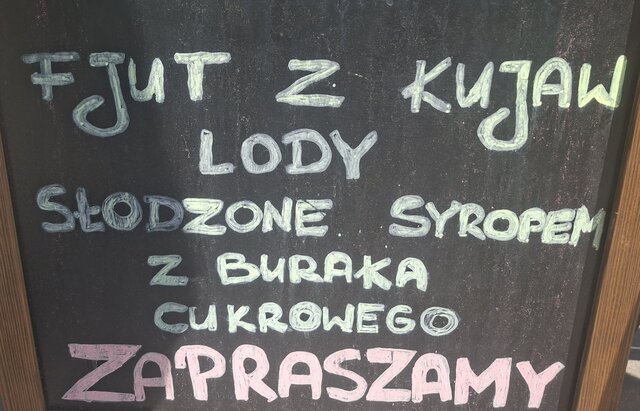 FJUT Z KUJAW
LODY
SŁODZONE SYROPEM
Z BURAKA
CUKROWEGO
ZAPRASZAMY